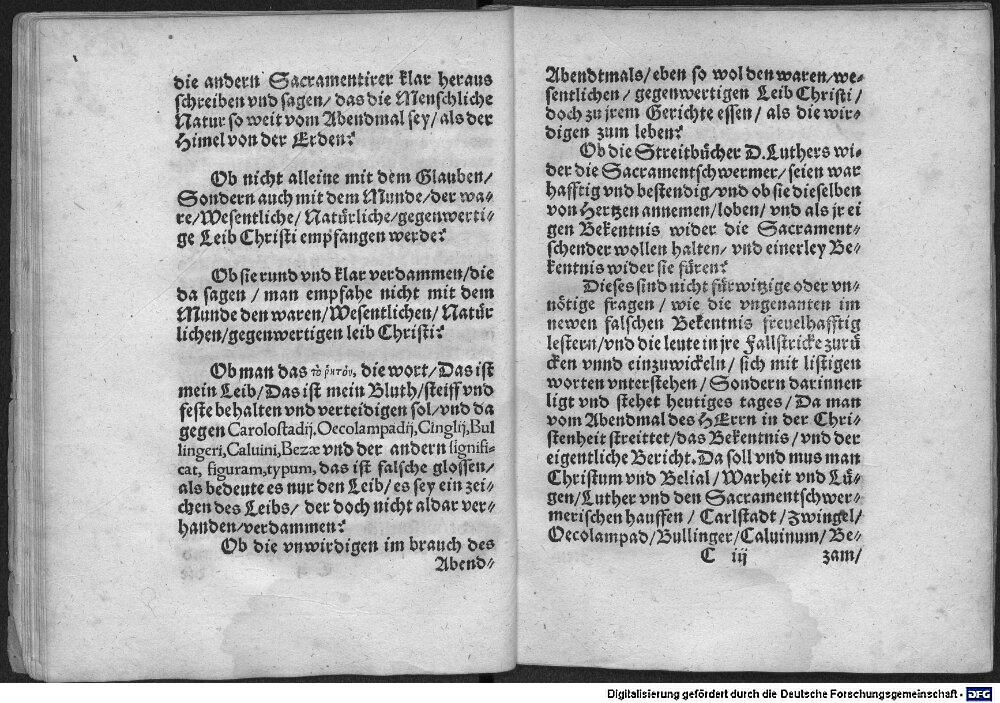 die andern Sacramentirer klar heraus
schreiben vnd sagen/ das die Menschliche
Natur so weit vom Abendmal sey/ als der
Himel von der Erden?
Ob nicht alleine mit dem Glauben/
Sondern auch mit dem Munde/der wa⸗
re/Wesentliche/ Natürliche/gegenwerti⸗
ge Leib Christi empfangen werde?
Ob sie rund vnd klar verdammen/die
da sagen / man empfahe nicht mit dem
Munde den waren/Wesentlichen/ Natür
lichen/gegenwertigen leib Christi?
Ob man das τὸ ῥητόν, die wort/Das ist
mein Leib/Das ist mein Bluth/steiff vnd
feste behalten vnd verteidigen sol/vnd da
gegen Carolostadij, Oecolampadij, Cinglij, Bul
lingeri, Caluini, Bezæ vnd der andern significat,
cat, figuram, typum, das ist falsche glossen/
als bedeute es nur den Leib/ es sey ein zei⸗
chen des Leibs/ der doch nicht aldar ver⸗
handen/verdammen?
Ob die vnwirdigen im brauch des
Abend⸗
Abendtmals/eben so wol den waren/we⸗
sentlichen/ gegenwertigen Leib Christi/
doch zu jrem Gerichte essen/ als die wir⸗
digen zum leben?
Ob die Streitbücher D. Luthers wi⸗
der die Sacramentschwermer/ seien war
hafftig vnd bestendig/vnd ob sie dieselben
von Hertzen annemen/loben/ vnd als jr ei
gen Bekentnis wider die Sacrament⸗
schender wollen halten/ vnd einerley Be⸗
kentnis wider sie füren?
Dieses sind nicht fürwitzige oder vn⸗
nötige fragen / wie die vngenanten im
newen falschen Bekentnis freuelhafftig
lestern/vnd die leute in jre Fallstricke zurü
cken vnnd einzuwickeln/ sich mit listigen
worten vnterstehen/ Sondern darinnen
ligt vnd stehet heutiges tages/ Da man
vom Abendmal des HErrn in der Chri⸗
stenheit streittet/das Bekentnis/ vnd der
eigentliche Bericht. Da soll vnd mus man
Christum vnd Belial/ Warheit vnd Lü⸗
gen/Luther vnd den Sacramentschwer⸗
merischen hauffen/ Carlstadt/ Zwingel/
Oecolampad/Bullinger/Caluinum/ Be⸗
C iij zam/
Digitalisierung gefördert durch die Deutsche Forschungsgemeinschaft - DFG